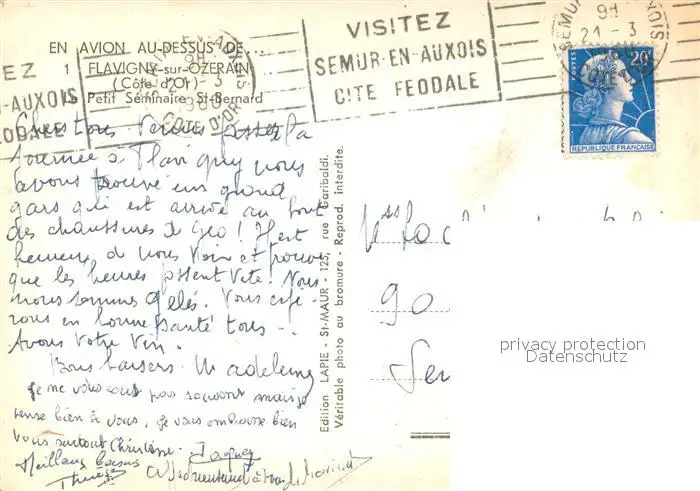 VISITEZ
SEMUR-EN-AUXOIS
CITE FEODALE
EN AVION AU-DESSUS DE...
1 FLAVIGNY-sur-OZERAIN
(Côte d'Or)
Le Petit Séminaire St-Bernard
EZ
N-AUXOIS
ODALE
COTE D'OR
SEMUR
9H
21-3
20F
POSTES
REPUBLIQUE FRANÇAISE
Chers tous Venus passer la
Journée à Flavigny nous
avons trouvé un grand
gars qui est arrivé au bout
des chaussures de Géo ! Il est
heureux de nous voir et trouve
que les heures passent vite. Nous
nous sommes gelés. Vous espé-
rons en bonne santé tous -
Avons votre vin.
Bons baisers. Madeleine
Je ne vous écris pas souvent mais je
pense bien à vous, je vous embrasse bien
vous surtout Christiane. Jacques
Meilleurs baisers
Thérèse
à tous
Edition LAPIE - St-MAUR - 125, rue Garibaldi.
Véritable photo au bromure - Reprod. interdite.
90
privacy protection
Datenschutz